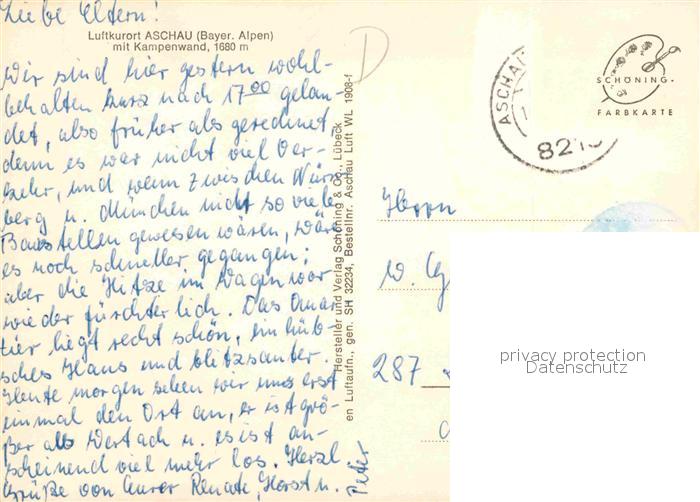 Liebe Eltern!
Luftkurort ASCHAU (Bayer. Alpen)
mit Kampenwand, 1680 m
Wir sind hier gestern wohl-
behalten kurz nach 17⁰⁰ gelan-
det, also früher als gerechnet,
denn es war nicht viel Ver-
kehr, und wenn zwischen Nürn-
berg u. München nicht so viele
Baustellen gewesen wären, wäre
es noch schneller gegangen;
aber die Hitze im Wagen war
wieder fürchterlich. Das Quar-
tier liegt recht schön, ein hüb-
sches Haus und blitzsauber.
Heute morgen sehen wir uns erst
einmal den Ort an, er ist grö-
ßer als Wertach u. es ist an-
scheinend viel mehr los. Herzl.
Grüße von Eurer Renate, Horst u.
Peter
Hersteller und Verlag Schöning & Co., Lübeck
en Luftaufn., gen. SH 32234, Bestellnr.: Aschau Luft WL 1908-f
D
ASCHAU
821
SCHÖNING
FARBKARTE
Herrn
W.
287
privacy protection
Datenschutz